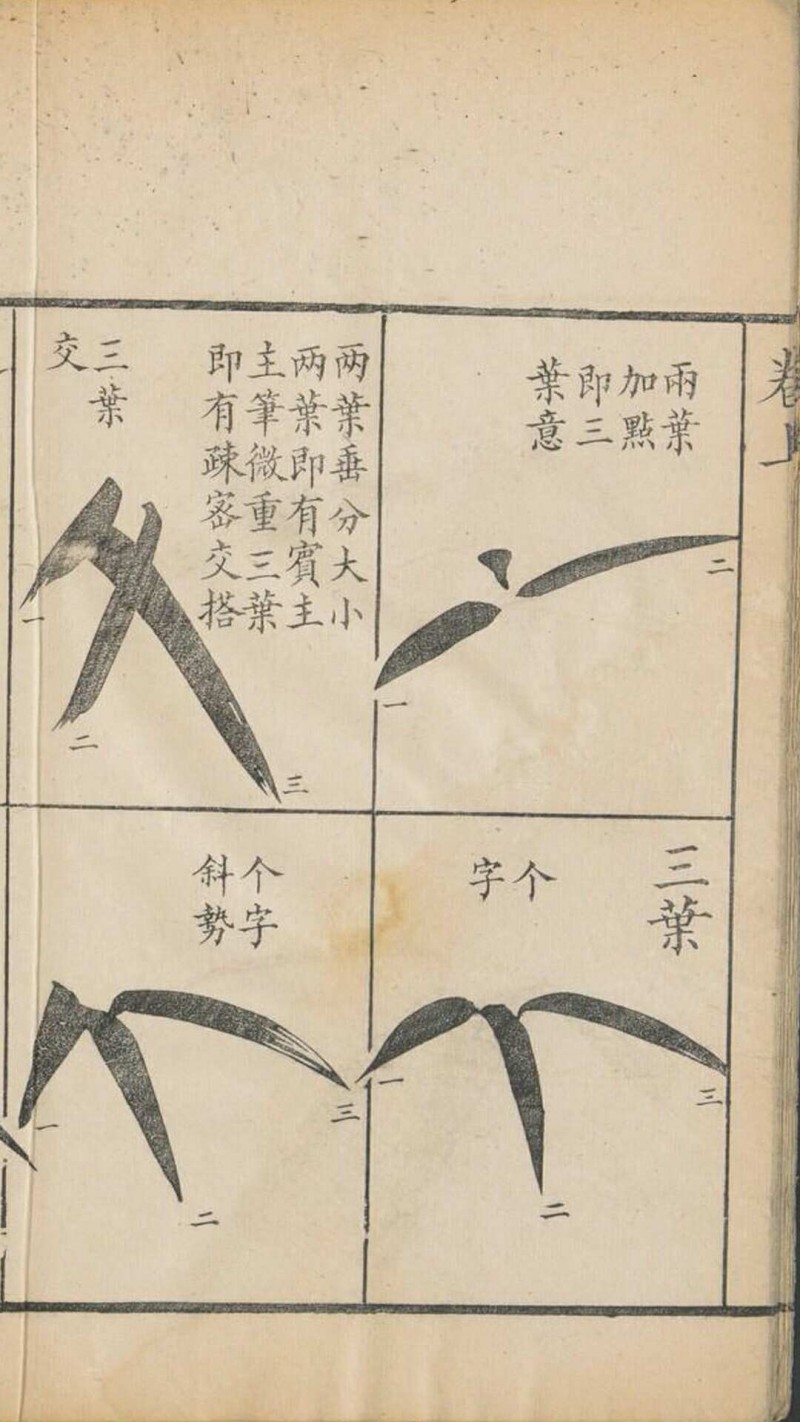 卷上
兩葉
加點
即三
葉意
二
一
三葉
个
字
一
二
三
两葉垂分大小
两葉即有賓主
主筆微重三葉
即有疎宻交搭
三葉
交
一
二
三
个字
斜勢
一
二
三